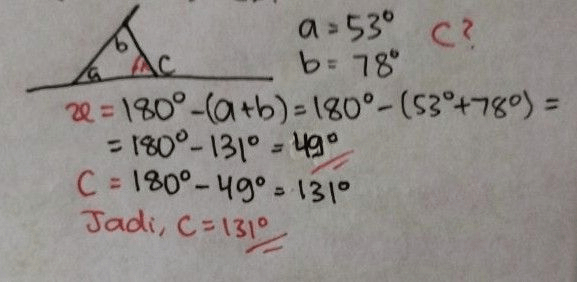 b
a
C
a = 53°
b = 78°
C?
x = 180° - (a+b) = 180° - (53°+78°) =
= 180° - 131° = 49°
C = 180° - 49° = 131°
Jadi, C = 131°